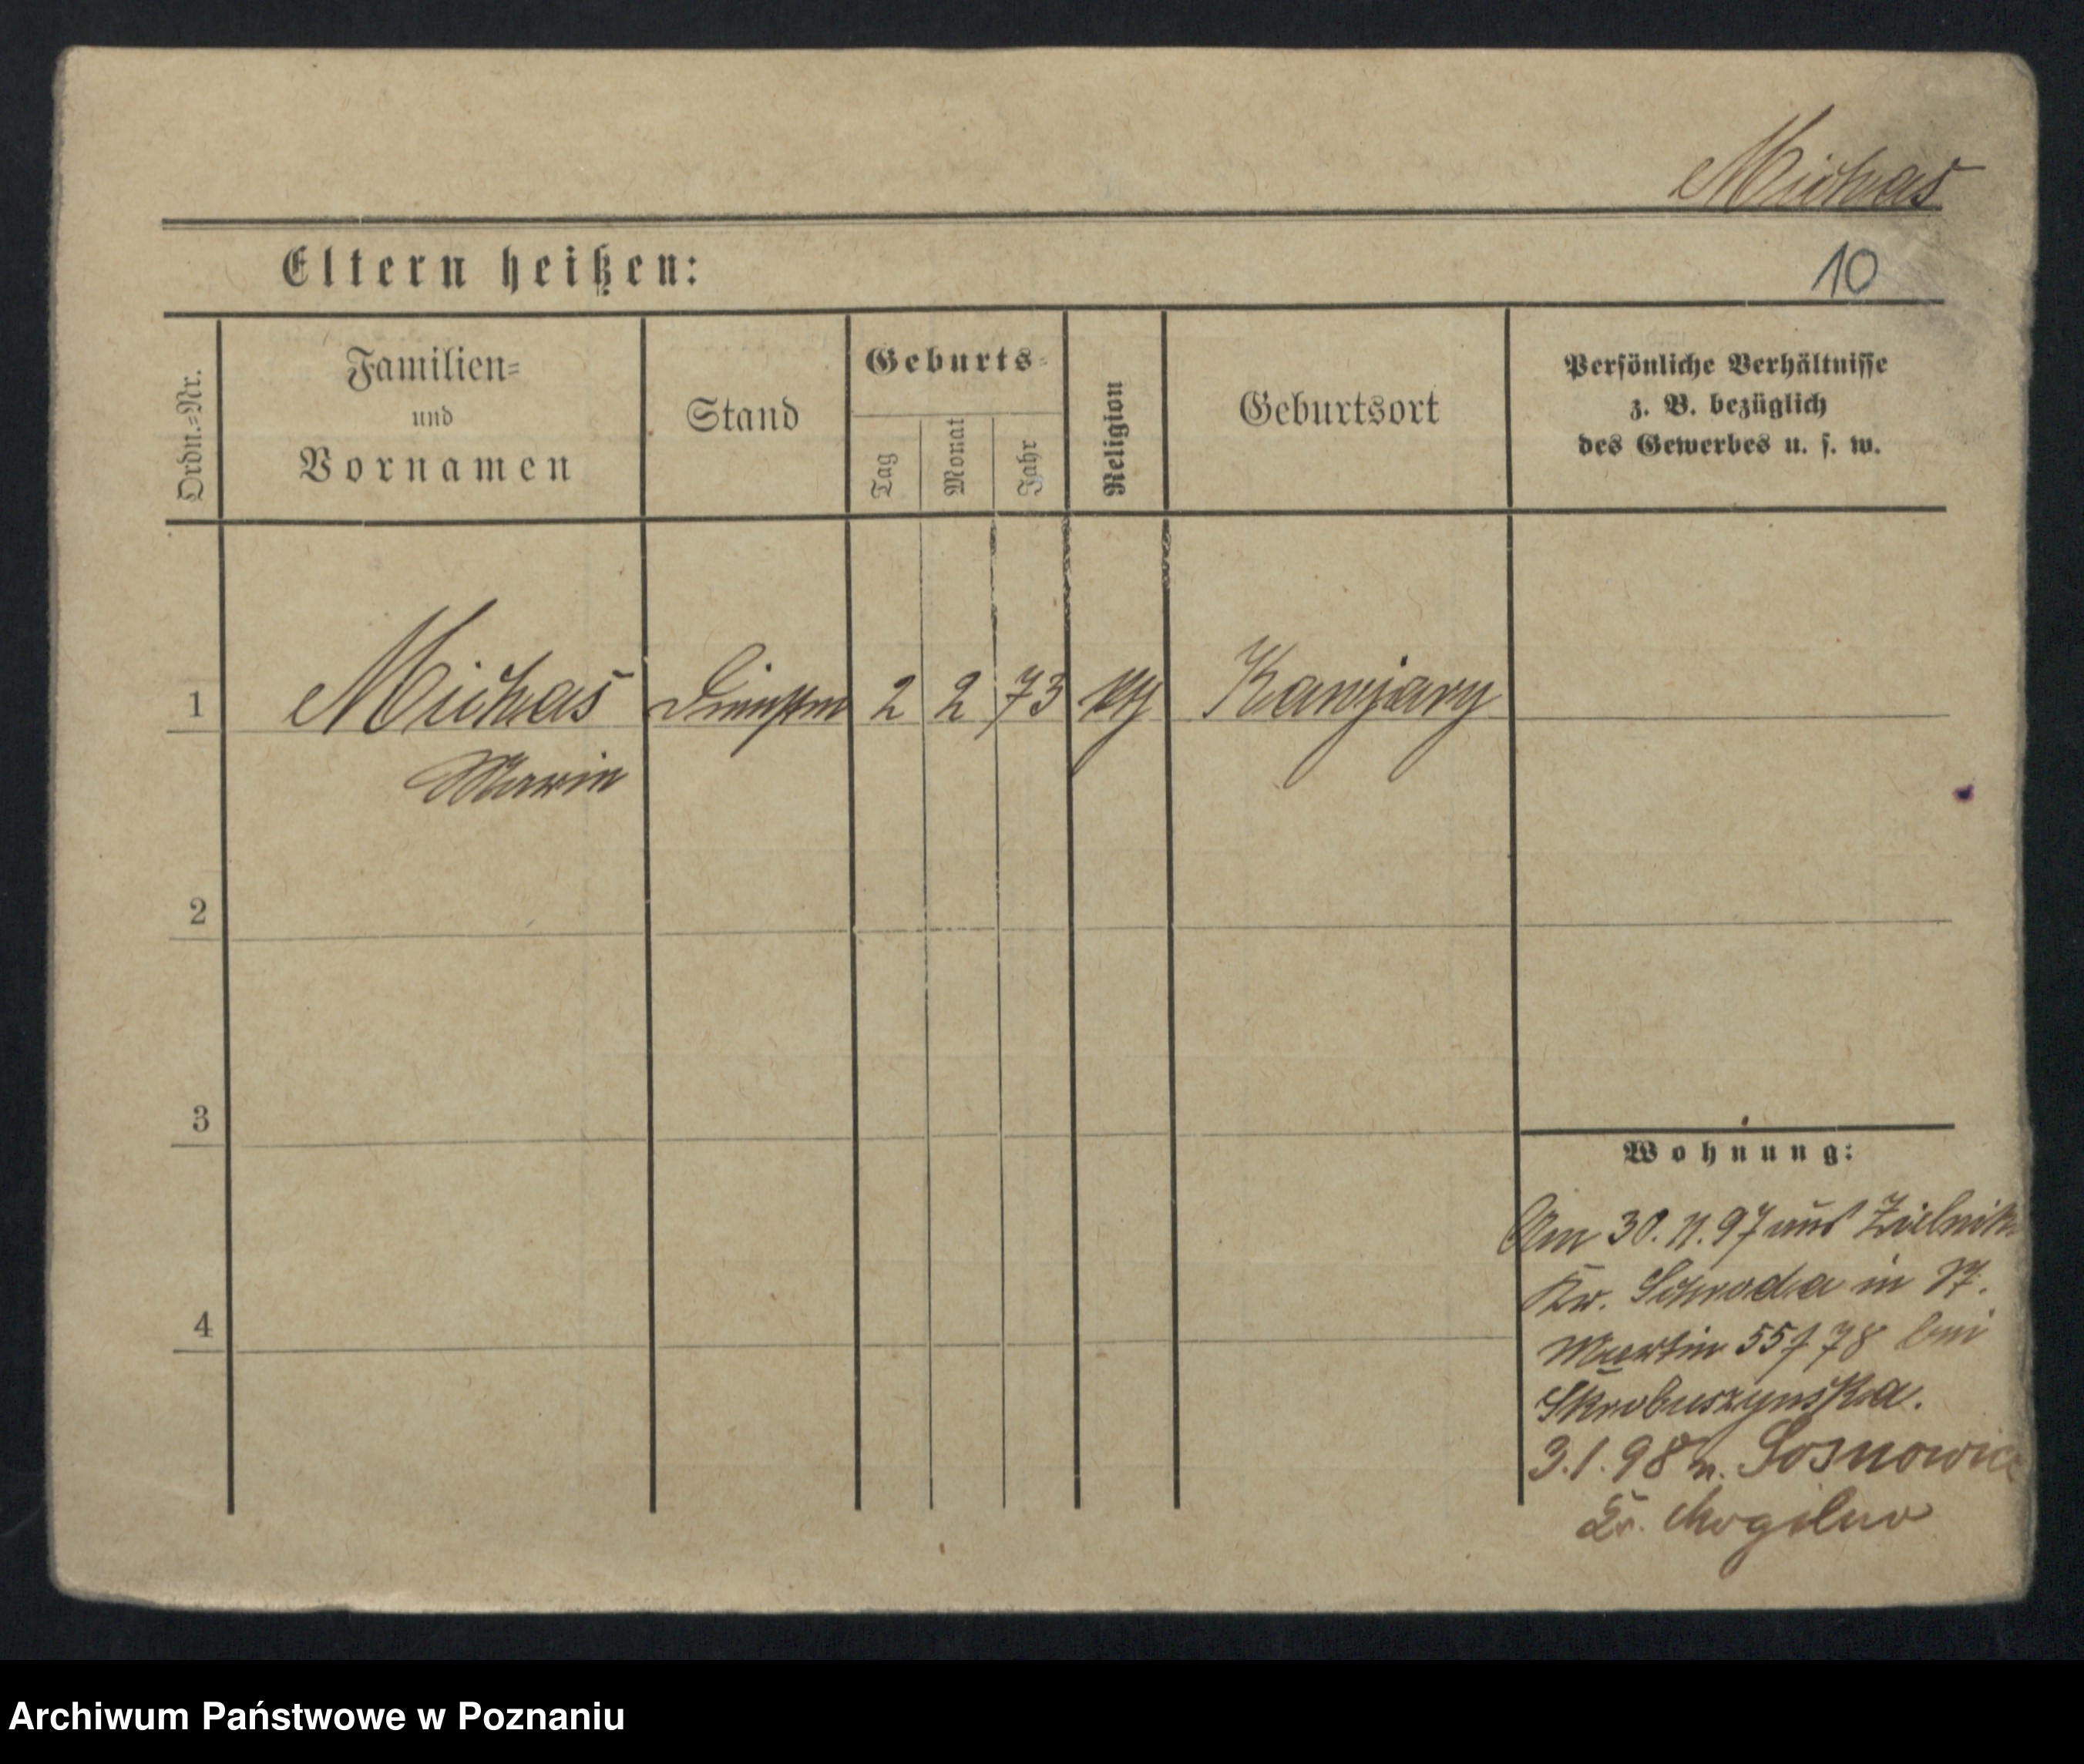 Michas
Eltern heißen:
10
Ordn.=Nr.
Familien=
und
Vornamen
Stand
Geburts=
Tag
Monat
Jahr
Religion
Geburtsort
Persönliche Verhältnisse
z. B. bezüglich
des Gewerbes u. s. w.
1 Michas 2 2 73
Marie
2
3
4
Wohnung:
Am 30.11.97 aus Zielnik
Kr. Schroda in St.
Martin 55 78 bei
Skrobuszynska.
3.1.98 n. Sosnowice
Kr. Mogilno
Archiwum Państwowe w Poznaniu